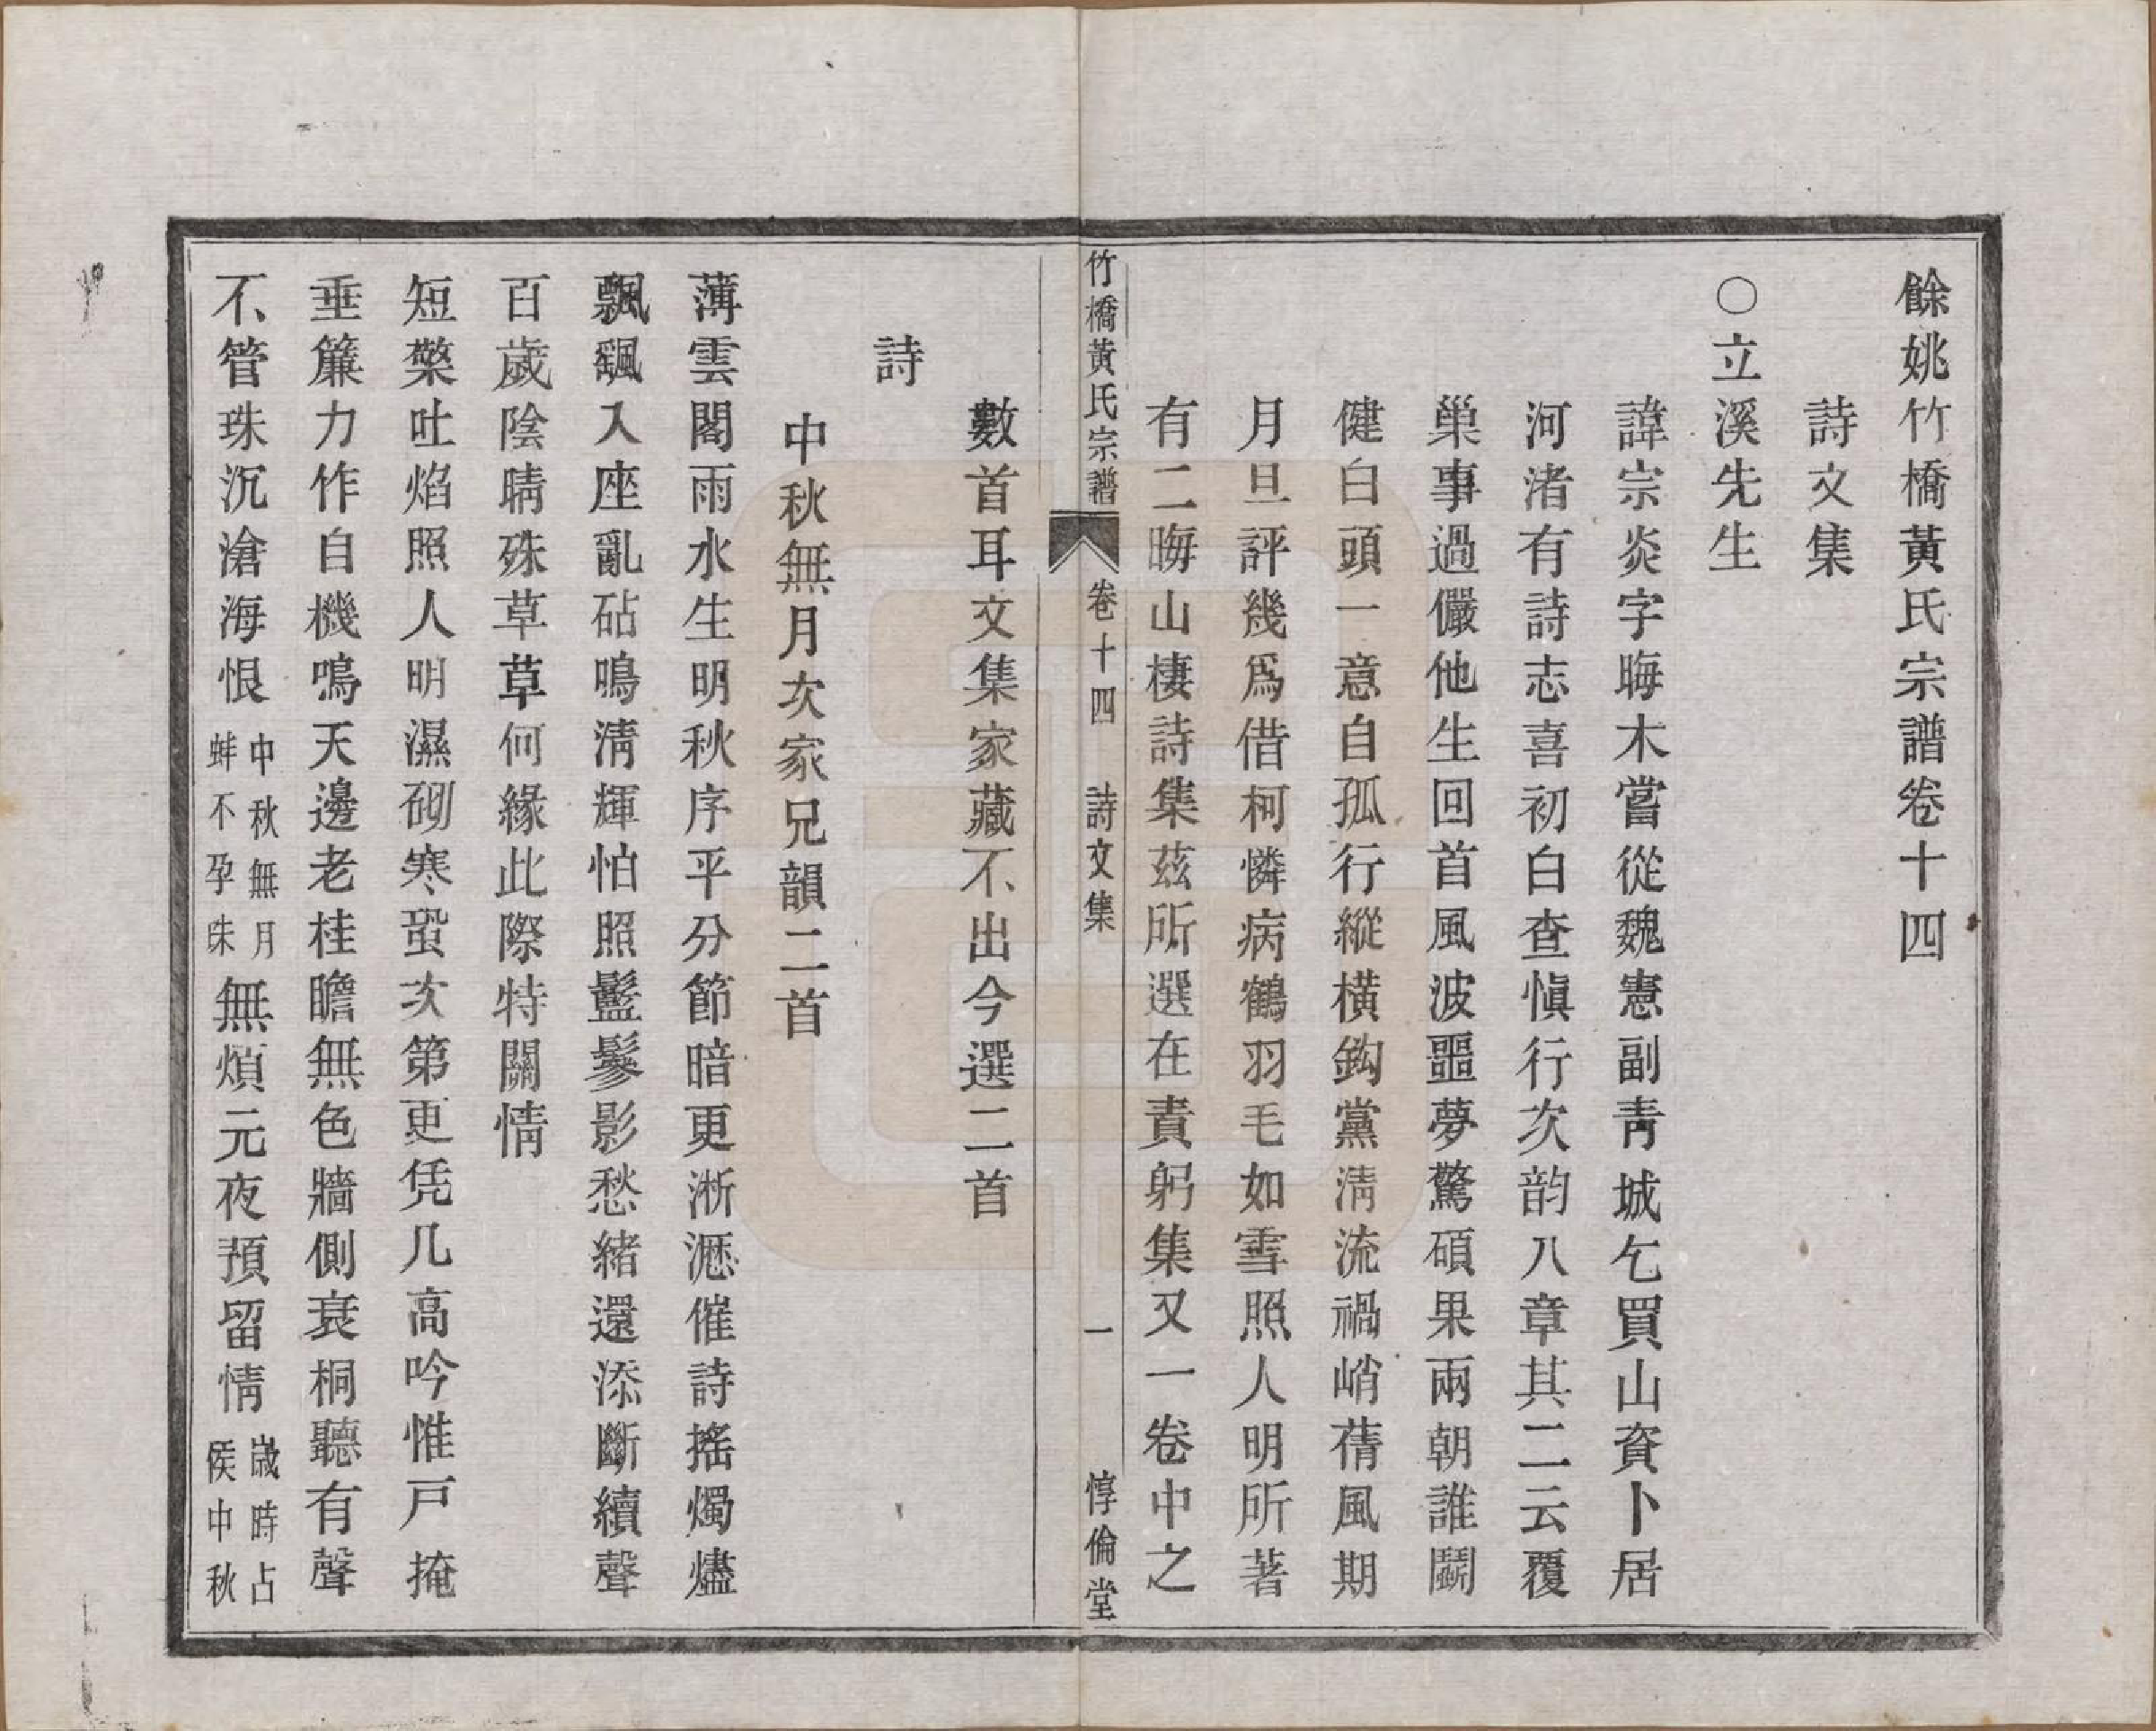 餘姚竹橋黃氏宗譜卷十四
詩文集
○立溪先生
諱宗炎字晦木嘗從魏憲副青城乞買山資卜居
河渚有詩志喜初白查慎行次韵八章其二云覆
巢事過儼他生回首風波噩夢驚碩果兩朝誰鬭
健白頭一意自孤行縱橫鈎黨清流禍峭蒨風期
月旦評幾爲借柯憐病鶴羽毛如雪照人明所著
有二晦山棲詩集茲所選在責躬集又一卷中之
竹橋黃氏宗譜 卷十四 詩文集 一 惇倫堂
數首耳文集家藏不出今選二首
詩
中秋無月次家兄韻二首
薄雲閣雨水生明秋序平分節暗更淅瀝催詩搖燭燼
飄颻入座亂砧鳴清輝怕照鬖鬖影愁緒還添斷續聲
百歲陰晴殊草草何緣此際特關情
短檠吐焰照人明濕砌寒蛩次第更凭几高吟惟戸掩
垂簾力作自機鳴天邊老桂瞻無色牆側衰桐聽有聲
不管珠沉滄海恨中秋無月蚌不孕珠無煩元夜預留情歲時占侯中秋